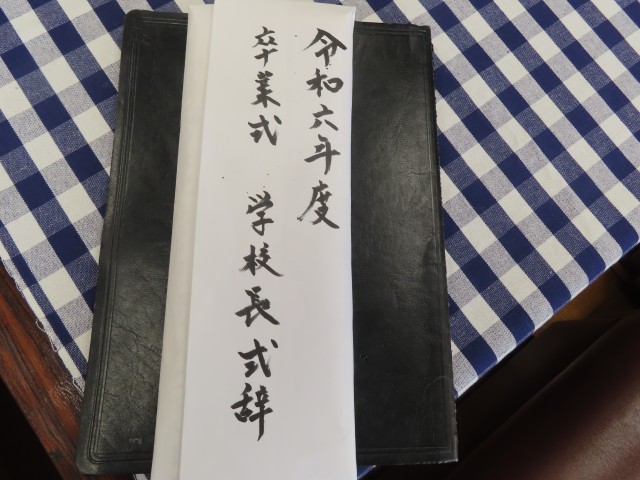 令和六年度
卒業式 学校長式辞